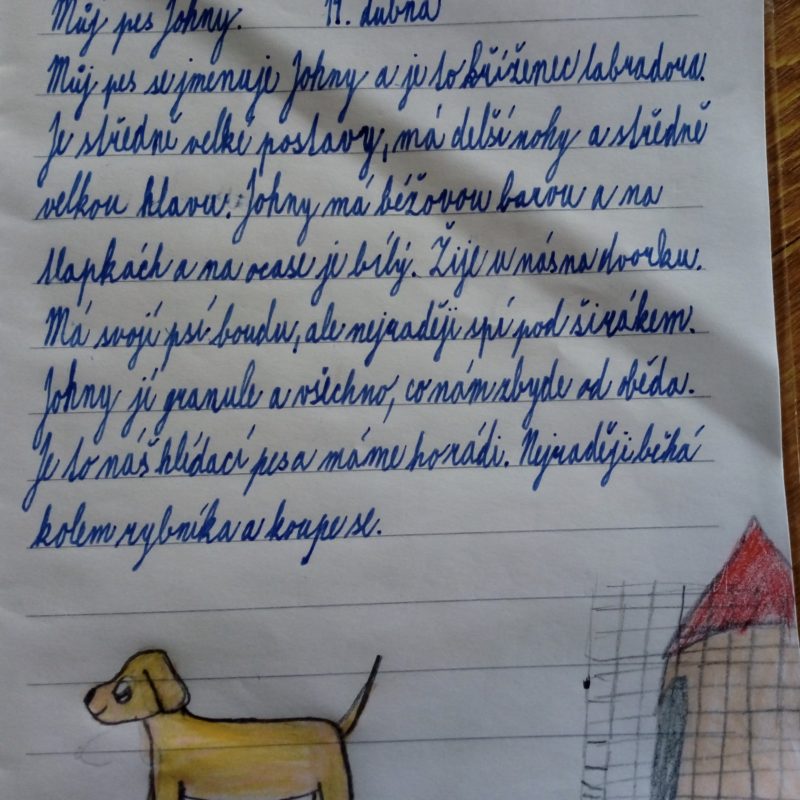 Můj pes Johny. 19. dubna
Můj pes se jmenuje Johny a je to kříženec labradora.
Je středně velké postavy, má delší nohy a středně
velkou hlavu. Johny má béžovou barvu a na
tlapkách a na ocase je bílý. Žije u nás na dvorku.
Má svojí psí boudu, ale nejraději spí pod širákem.
Johny jí granule a všechno, co nám zbyde od oběda.
Je to náš hlídací pes a máme ho rádi. Nejraději běhá
kolem rybníka a koupe se.